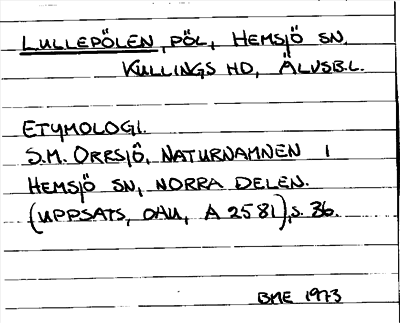 LULLEPÖLEN, PÖL, HEMSJÖ SN,
KULLINGS HD, ÄLVSB.L.
ETYMOLOGI.
S.M. ORRSJÖ, NATURNAMNEN I
HEMSJÖ SN, NORRA DELEN.
(UPPSATS, OAU, A 2581), s. 36.
BME 1973